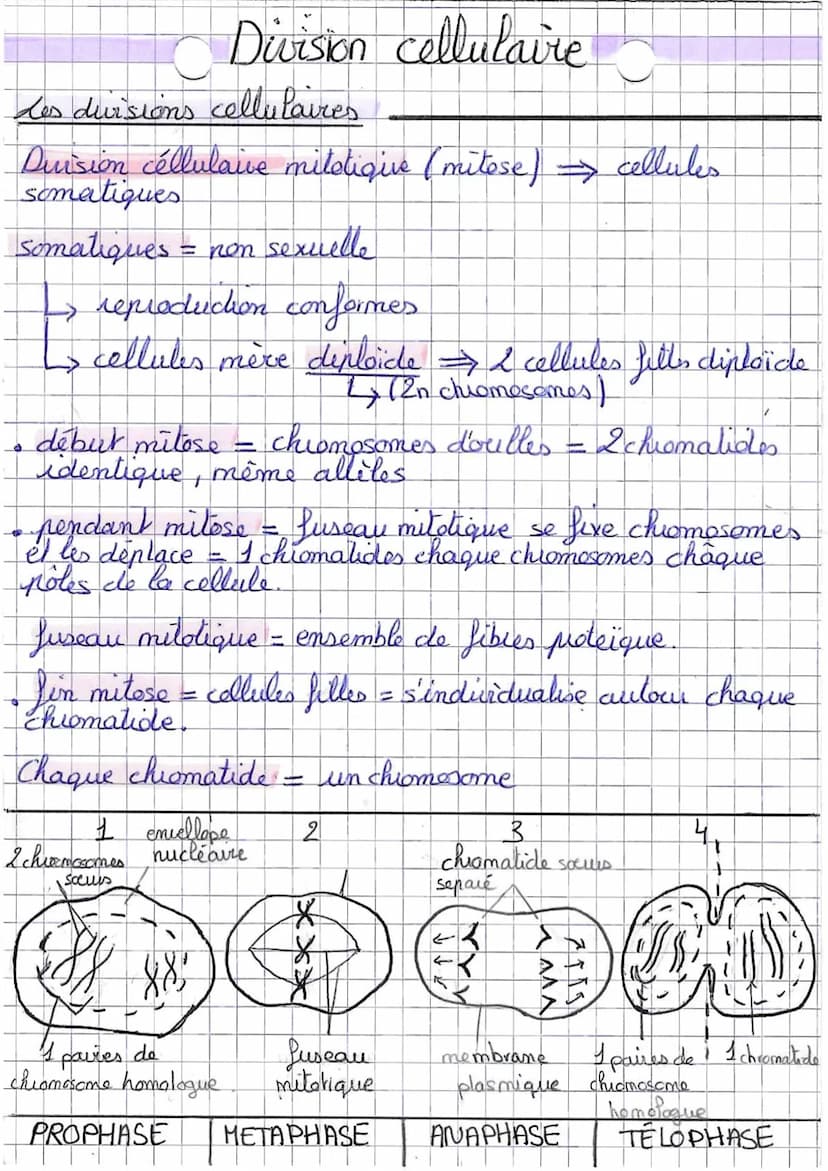 Division cellulaire
Les divisions cellulaires
Division céllulaire mitotique (mitose) ⇒ cellules
somatiques
somatiques = non sexuelle
↳ reproduction conformes
↳ cellules mère diploïde ⇒ 2 cellules filles diploïde
↳ (2n chromosomes)
• début mitose = chromosomes d'oulles = 2 chromatides
identique, même allèles
• pendant mitose = fuseau mitotique se fixe chromosomes
et les déplace = 1 chromatides chaque chromosomes châque
pôles de la cellule.
fuseau mitotique = ensemble de fibres proteïque.
• fin mitose = cellules filles = s'individualise autour chaque
chromatide.
Chaque chromatide = un chromosome
1 2 3 4
enveloppe
nucléaire
2 chromosomes
sœurs
chromatide sœurs
separé
1 paires de
chromosome homologue
fuseau
mitotique
membrane
plasmique
1 paires de
chromosome
homologue
1 chromatide
PROPHASE METAPHASE ANAPHASE TÉLOPHASE